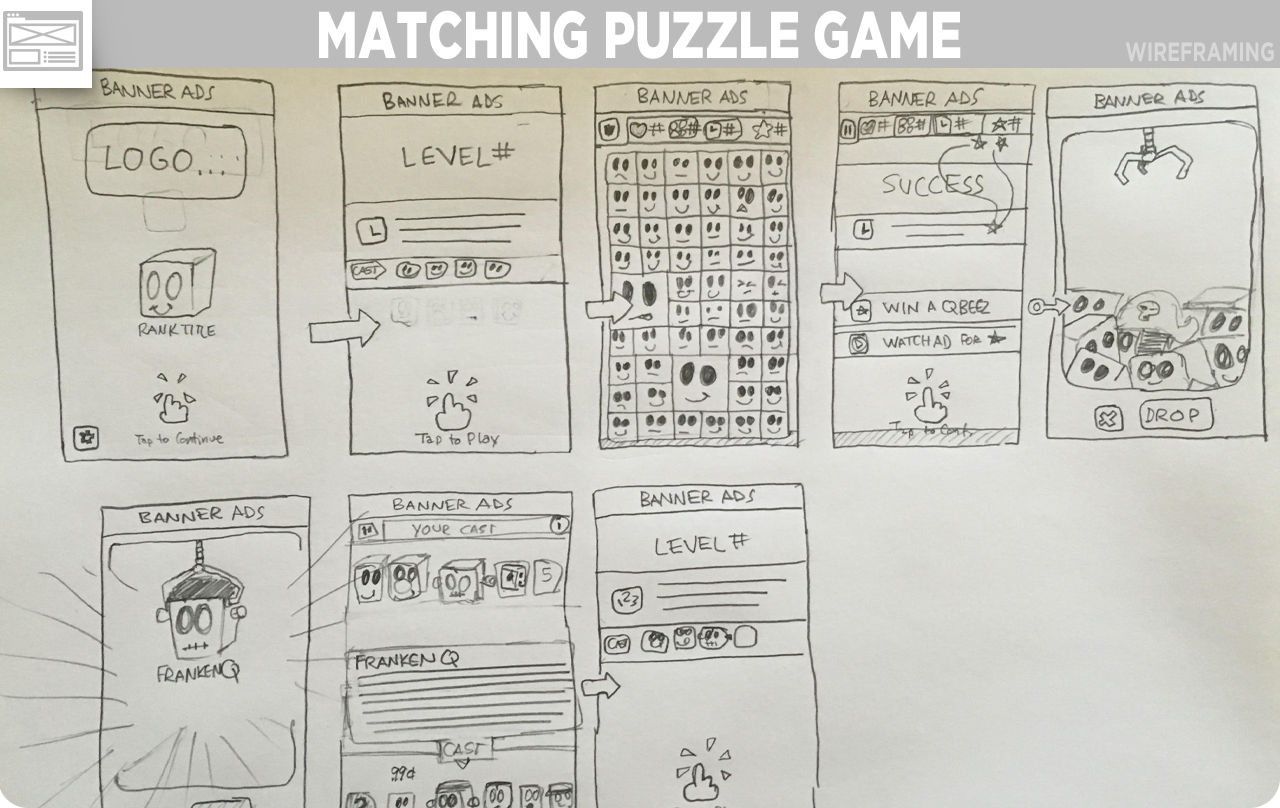 MATCHING PUZZLE GAME
WIREFRAMING
BANNER ADS
LOGO...
RANK TITLE
Tap to Continue
BANNER ADS
LEVEL#
CAST
Tap to Play
BANNER ADS
# # # #
BANNER ADS
# # # #
SUCCESS
WIN A QBEEZ
WATCH AD FOR
Tap to Cont.
BANNER ADS
?
DROP
BANNER ADS
FRANKENQ
BANNER ADS
YOUR CAST
i
5
FRANKEN Q
CAST
99¢
BANNER ADS
LEVEL #
123
CAST